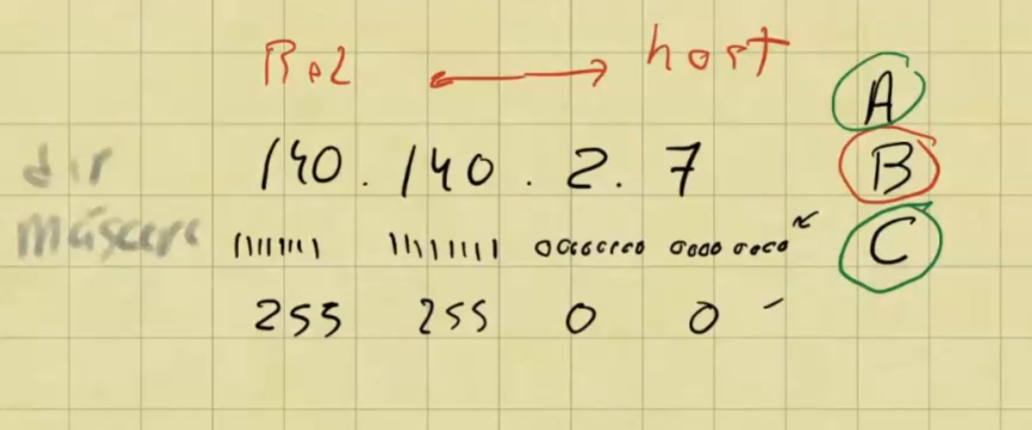 Red ↔ host
A
dir 140 . 140 . 2 . 7 B
máscara 11111111 11111111 00000000 00000000 C
255 255 0 0